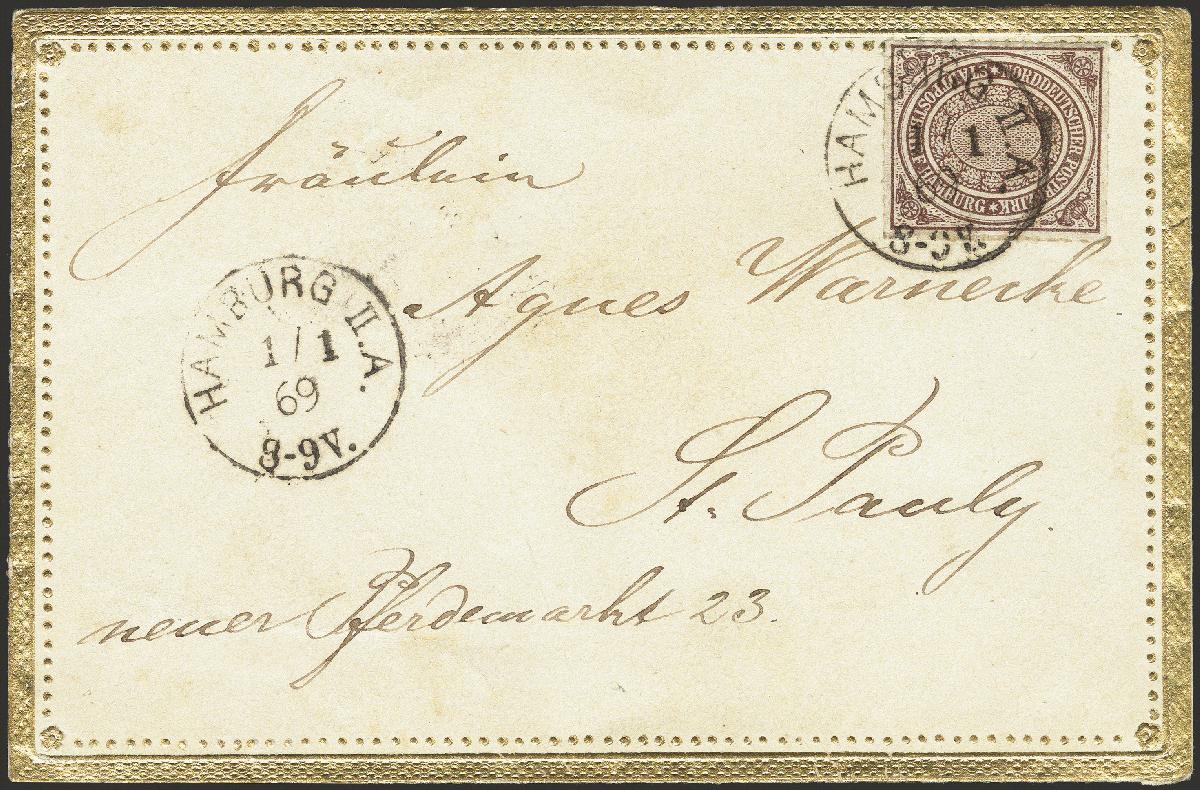 Fräulein
Agnes Warnecke
St. Pauly.
neuer Pferdemarkt 23.
HAMBURG II.A.
1/1
69
8-9V.
HAMBURG II.A.
1
8-9V.
NORDDEUTSCHER POSTBEZIRK * HAMBURG STADTPOSTBRIEF